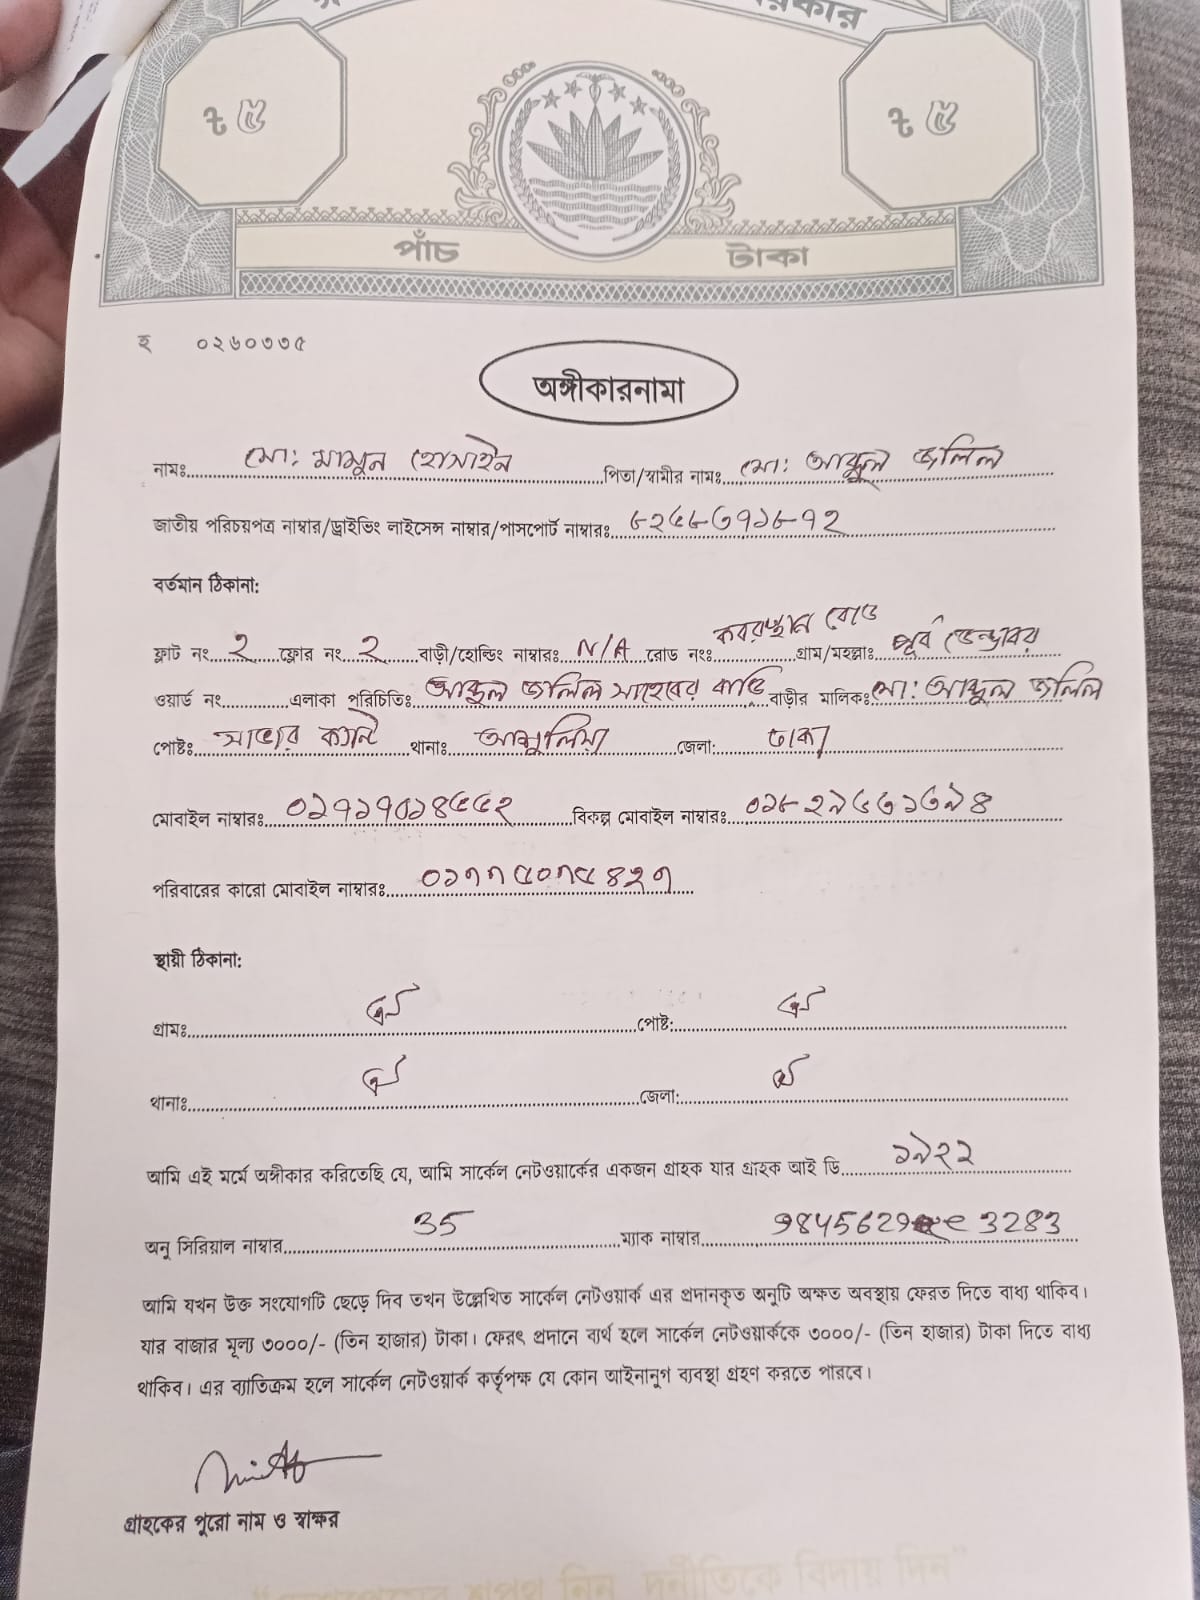 রকার
৳ ৫
৳ ৫
পাঁচ টাকা
হ ০২৬০৩৩৫
অঙ্গীকারনামা
নামঃ মো: মামুন হোসাইন পিতা/স্বামীর নামঃ মো: আব্দুল জলিল
জাতীয় পরিচয়পত্র নাম্বার/ড্রাইভিং লাইসেন্স নাম্বার/পাসপোর্ট নাম্বারঃ
বর্তমান ঠিকানা:
ফ্লাট নং ২ ফ্লোর নং ২ বাড়ী/হোল্ডিং নাম্বারঃ N/A রোড নং কবরস্থান রোড গ্রাম/মহল্লাঃ পূর্ব ডেন্ডাবর
ওয়ার্ড নং এলাকা পরিচিতিঃ আব্দুল জলিল সাহেবের বাড়ি বাড়ীর মালিকঃ মো: আব্দুল জলিল
পোষ্টঃ সাভার ক্যান্ট থানাঃ আশুলিয়া জেলা: ঢাকা
মোবাইল নাম্বারঃ বিকল্প মোবাইল নাম্বারঃ
পরিবারের কারো মোবাইল নাম্বারঃ
স্থায়ী ঠিকানা:
গ্রামঃ ঐ পোষ্ট: ঐ
থানাঃ ঐ জেলা: ঐ
আমি এই মর্মে অঙ্গীকার করিতেছি যে, আমি সার্কেল নেটওয়ার্কের একজন গ্রাহক যার গ্রাহক আই ডি ১৯২২
অনু সিরিয়াল নাম্বার 35 ম্যাক নাম্বার 3283
আমি যখন উক্ত সংযোগটি ছেড়ে দিব তখন উল্লেখিত সার্কেল নেটওয়ার্ক এর প্রদানকৃত অনুটি অক্ষত অবস্থায় ফেরত দিতে বাধ্য থাকিব।
যার বাজার মূল্য ৩০০০/- (তিন হাজার) টাকা। ফেরৎ প্রদানে ব্যর্থ হলে সার্কেল নেটওয়ার্ককে ৩০০০/- (তিন হাজার) টাকা দিতে বাধ্য
থাকিব। এর ব্যাতিক্রম হলে সার্কেল নেটওয়ার্ক কর্তৃপক্ষ যে কোন আইনানুগ ব্যবস্থা গ্রহণ করতে পারবে।
গ্রাহকের পুরো নাম ও স্বাক্ষর
শপথ নিন দুর্নীতিকে বিদায় দিন"